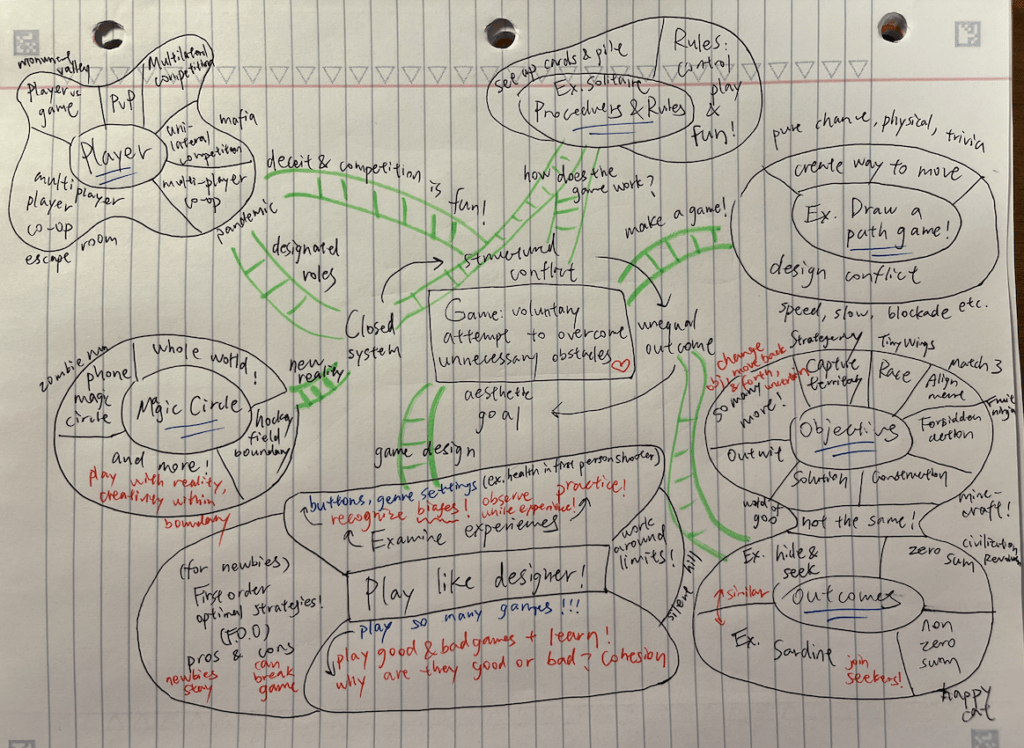 monument
valley
Player vs
game
PvP
Multilateral
competition
uni-
lateral
competition
mafia
Player
multi-player
co-op
multi
player
player
co-op
escape
room
pandemic
deceit & competition is
fun!
designated
roles
set up cards & pile
Ex. Solitaire
Procedures & Rules
Rules:
control
play
&
fun!
how does the
game work?
make a game!
pure chance, physical, trivia
create way to move
Ex. Draw a
path game!
design conflict
speed, slow, blockade etc.
structured
conflict
Closed
system
Game: voluntary
attempt to overcome
unnecessary obstacles
unequal
outcome
aesthetic
goal
new
reality
zombie run
phone
magic
circle
whole world!
Magic Circle
hockey
field
boundary
and more!
play with reality,
creativity within
boundary
game design
buttons, genre settings (ex. health in first person shooter)
recognize biases! observe practice!
while experience!
Examine experiences
work
around
limits!
Play like designer!
play so many games!!!
play good & bad games + learn!
why are they good or bad? Cohesion
silent hill
(for newbies)
First order
optimal strategies!
(F.O.O)
pros & cons
newbies
stay
can
break
game
Strategery
Tiny Wings
Match 3
Fruit ninja
change
obj, move back
& forth,
uncertain
so many
more!
Capture
territory
Race
Align
ment
Forbidden
action
Objective
Outwit
Solution
Construction
world of
goo
mine-
craft!
not the same!
Ex. hide &
seek
zero
sum
civilization
Revolution
similar
Outcomes
Ex. Sardine
join
seekers!
non
zero
sum
happy
cat